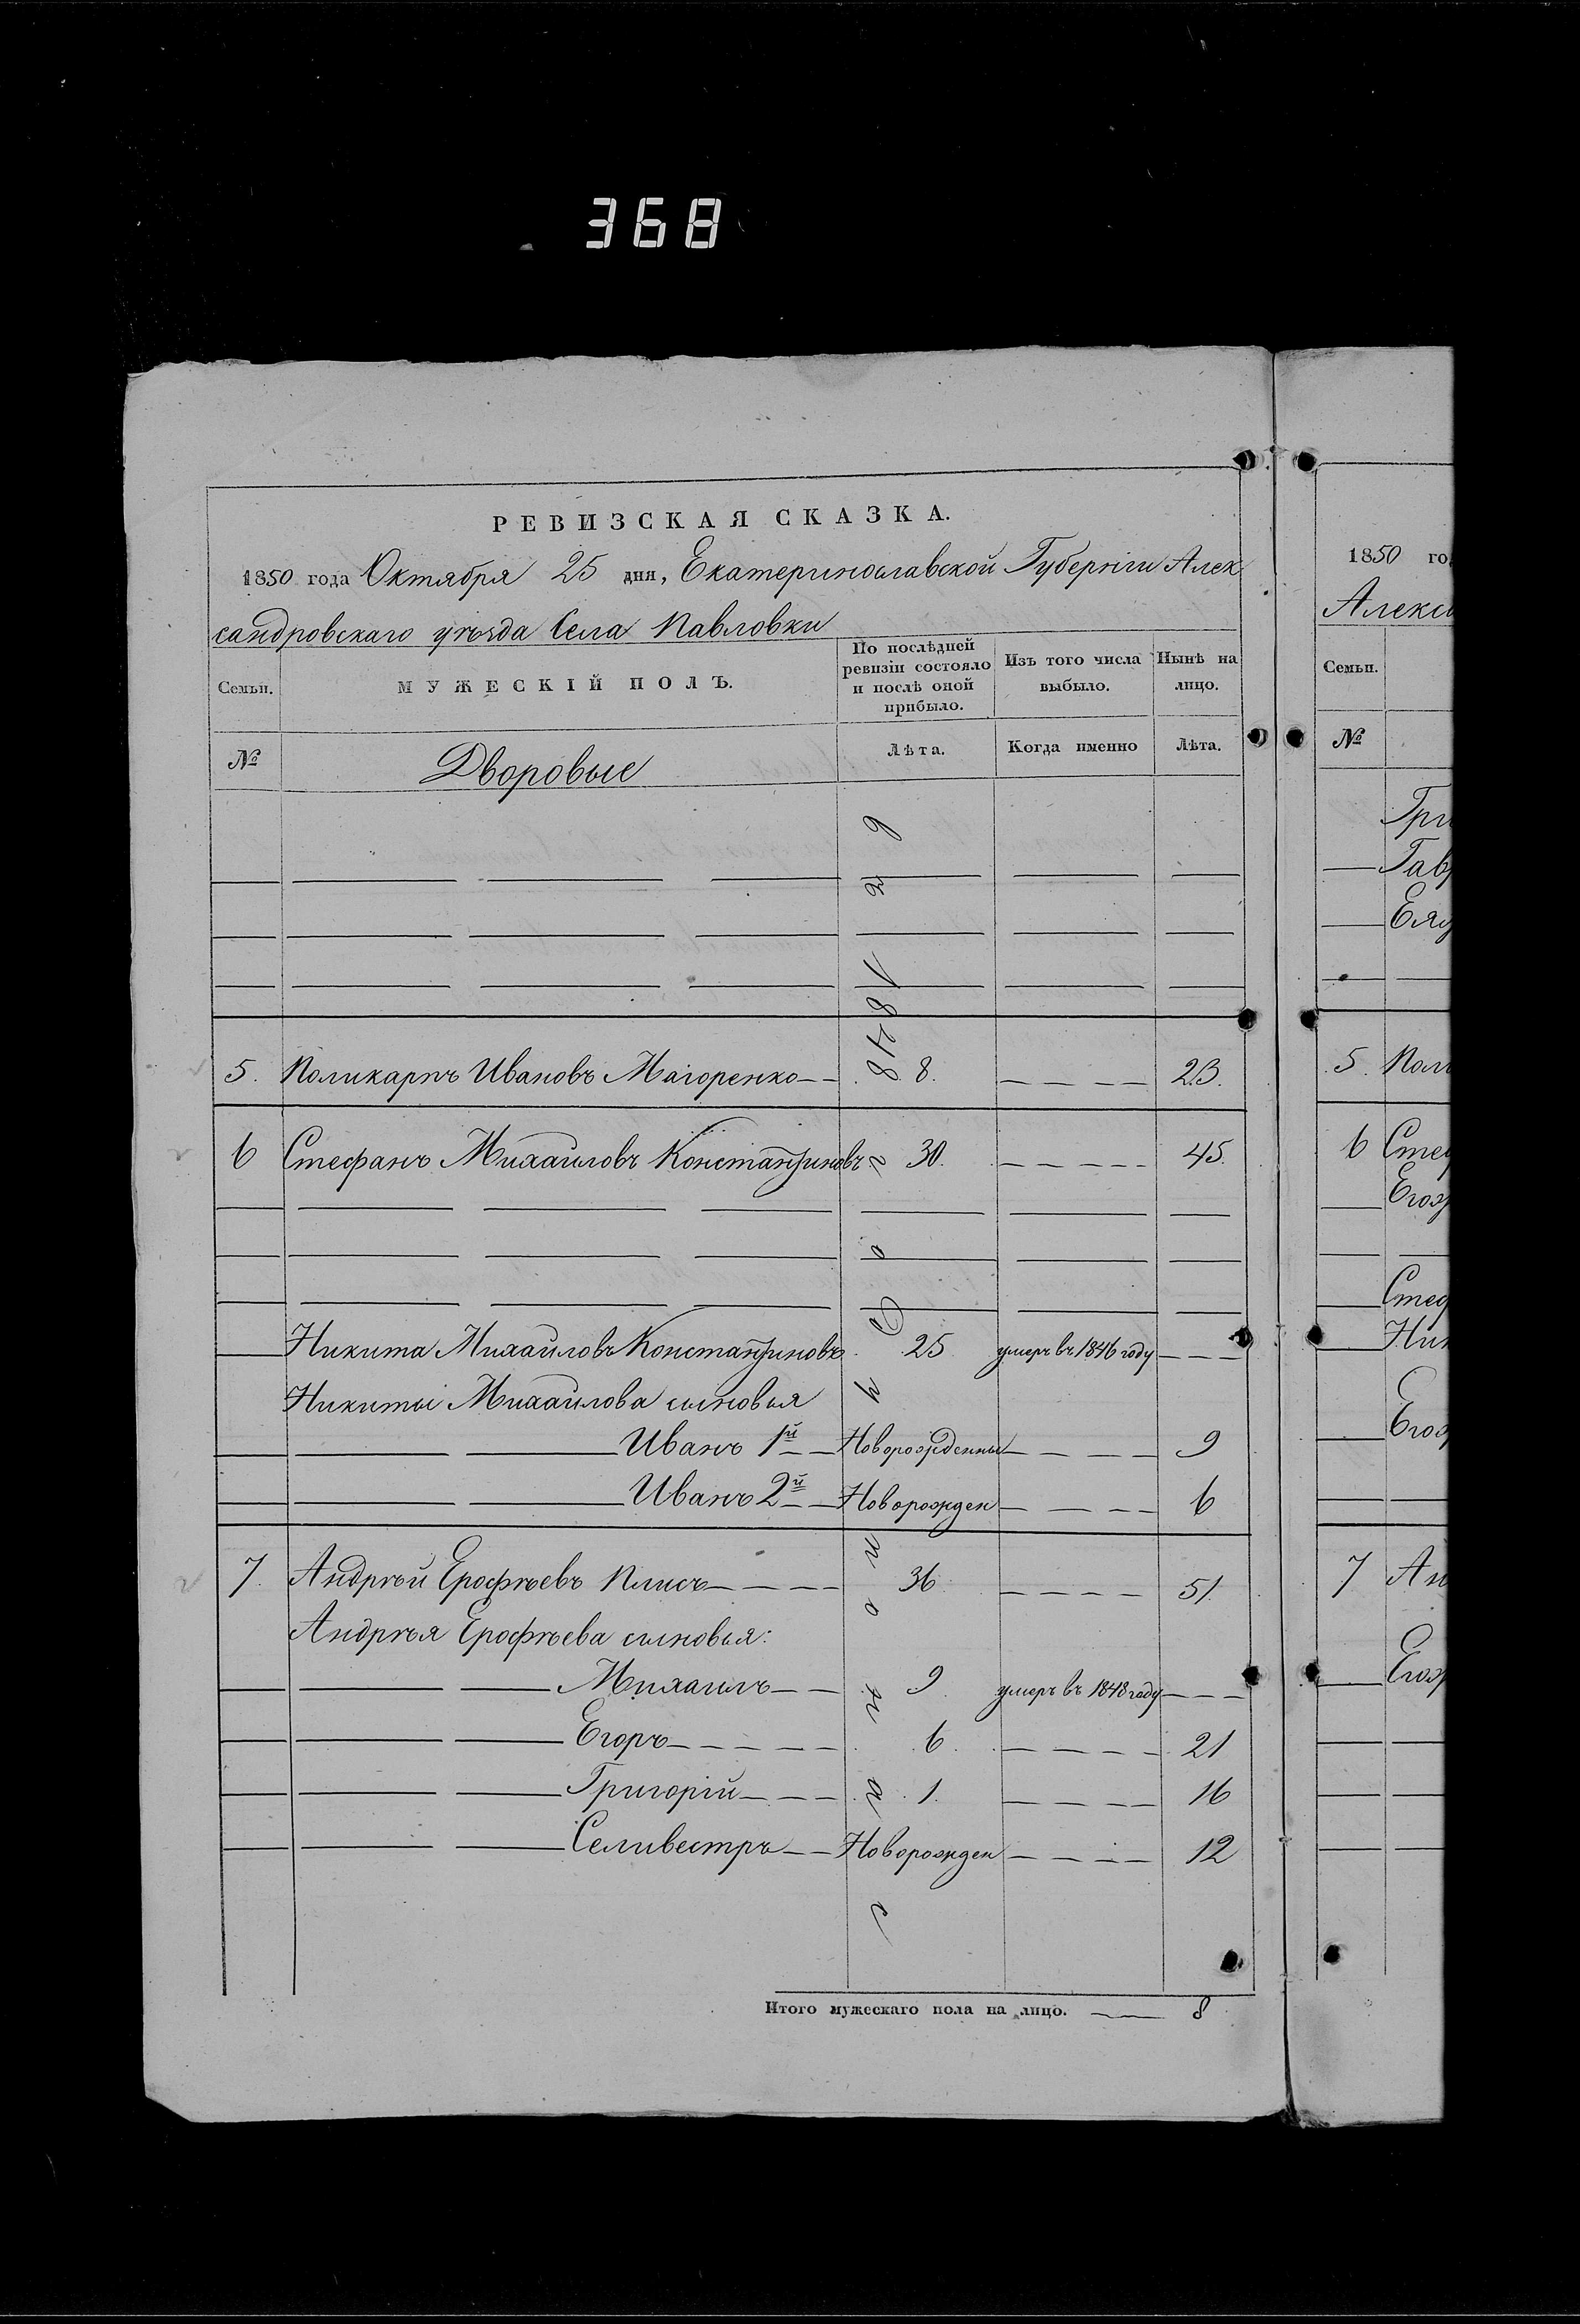 368
РЕВИЗСКАЯ СКАЗКА.
1850 года Октября 25 дня, Екатеринославской Губернiи Алек
сандровскаго уѣзда Села Павловки
Семьи.
МУЖЕСКІЙ ПОЛЪ.
По послѣдней ревизіи состояло и послѣ оной прибыло.
Изъ того числа выбыло.
Нынѣ на лицо.
№
Дворовые
Лѣта.
Когда именно
Лѣта.
5. Поликарпъ Ивановъ Магоренко 8. 23.
6 Стефанъ Михайловъ Константиновъ 30. 45.
Никита Михайловъ Константиновъ 25 умеръ въ 1846 году
Никиты Михайлова сыновья
Иванъ 1й Новорожденны 9
Иванъ 2й Новорожден 6
7. Андрѣй Ерофѣевъ Плисъ 36 51.
Андрѣя Ерофѣева сыновья:
Михаилъ 9 умеръ въ 1848 году
Егоръ 6. 21
Григорій 1. 16
Селивестръ Новорожден 12
Итого мужескаго пола на лицо. 8
1850 го
Алекс
Семьи.
№
Гри
Гав
Ея
5. Пол
6 Сте
Его
Стеф
Ник
Его
7 Ан
Его